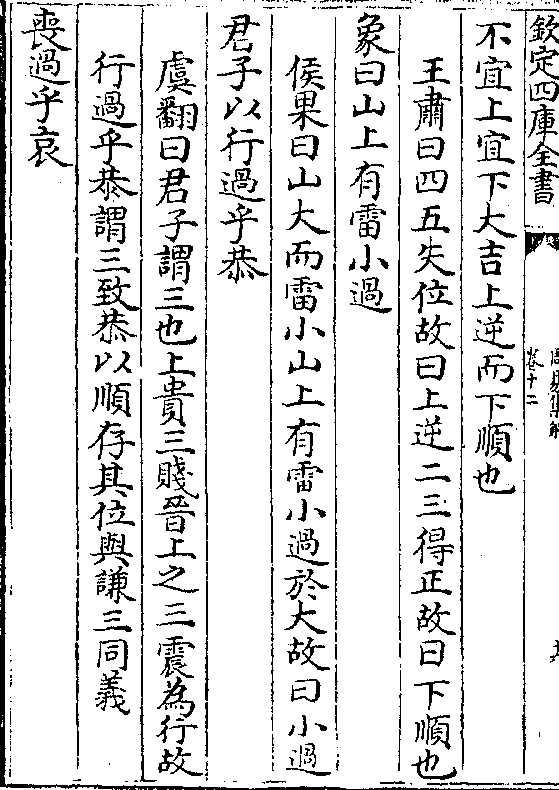 欽定四庫全書
卷十二
不宜上宜下大吉上逆而下順也
王肅曰四五失位故曰上逆二三得正故曰下順也
象曰山上有雷小過
侯果曰山大而雷小山上有雷小過於大故曰小過
君子以行過乎恭
虞翻曰君子謂三也上貴三賤晉上之三震為行故
行過乎恭謂三致恭以順存其位與謙三同義
喪過乎哀